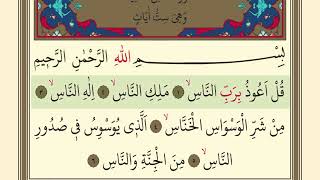 وَهِيَ سِتُّ اٰيَاتٍ
بِسْمِ اللّٰهِ الرَّحْمٰنِ الرَّحٖيمِ
قُلْ اَعُوذُ بِرَبِّ النَّاسِۙ ﴿١﴾ مَلِكِ النَّاسِۙ ﴿٢﴾ اِلٰهِ النَّاسِۙ ﴿٣﴾
مِنْ شَرِّ الْوَسْوَاسِ الْخَنَّاسِۙ ﴿٤﴾ اَلَّذٖى يُوَسْوِسُ فٖى صُدُورِ
النَّاسِۙ ﴿٥﴾ مِنَ الْجِنَّةِ وَالنَّاسِ ﴿٦﴾